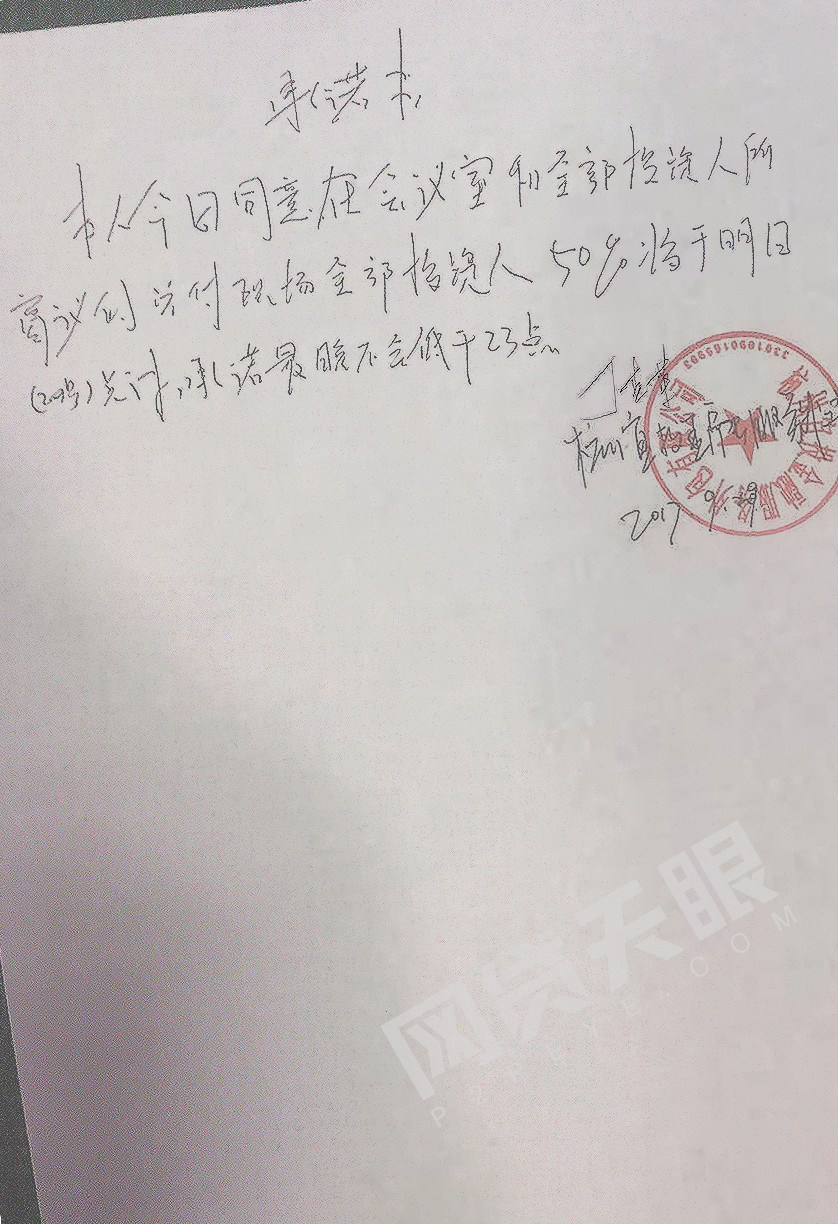 承诺书
本人今日同意在会议室和全部投资人所
商议的兑付现场全部投资人50%将于明日
(20号)兑付,承诺最晚不会低于23点
杭州
2017.9.
3301090165993
金融服务外包有限公司
网贷天眼
P2PEYE.COM